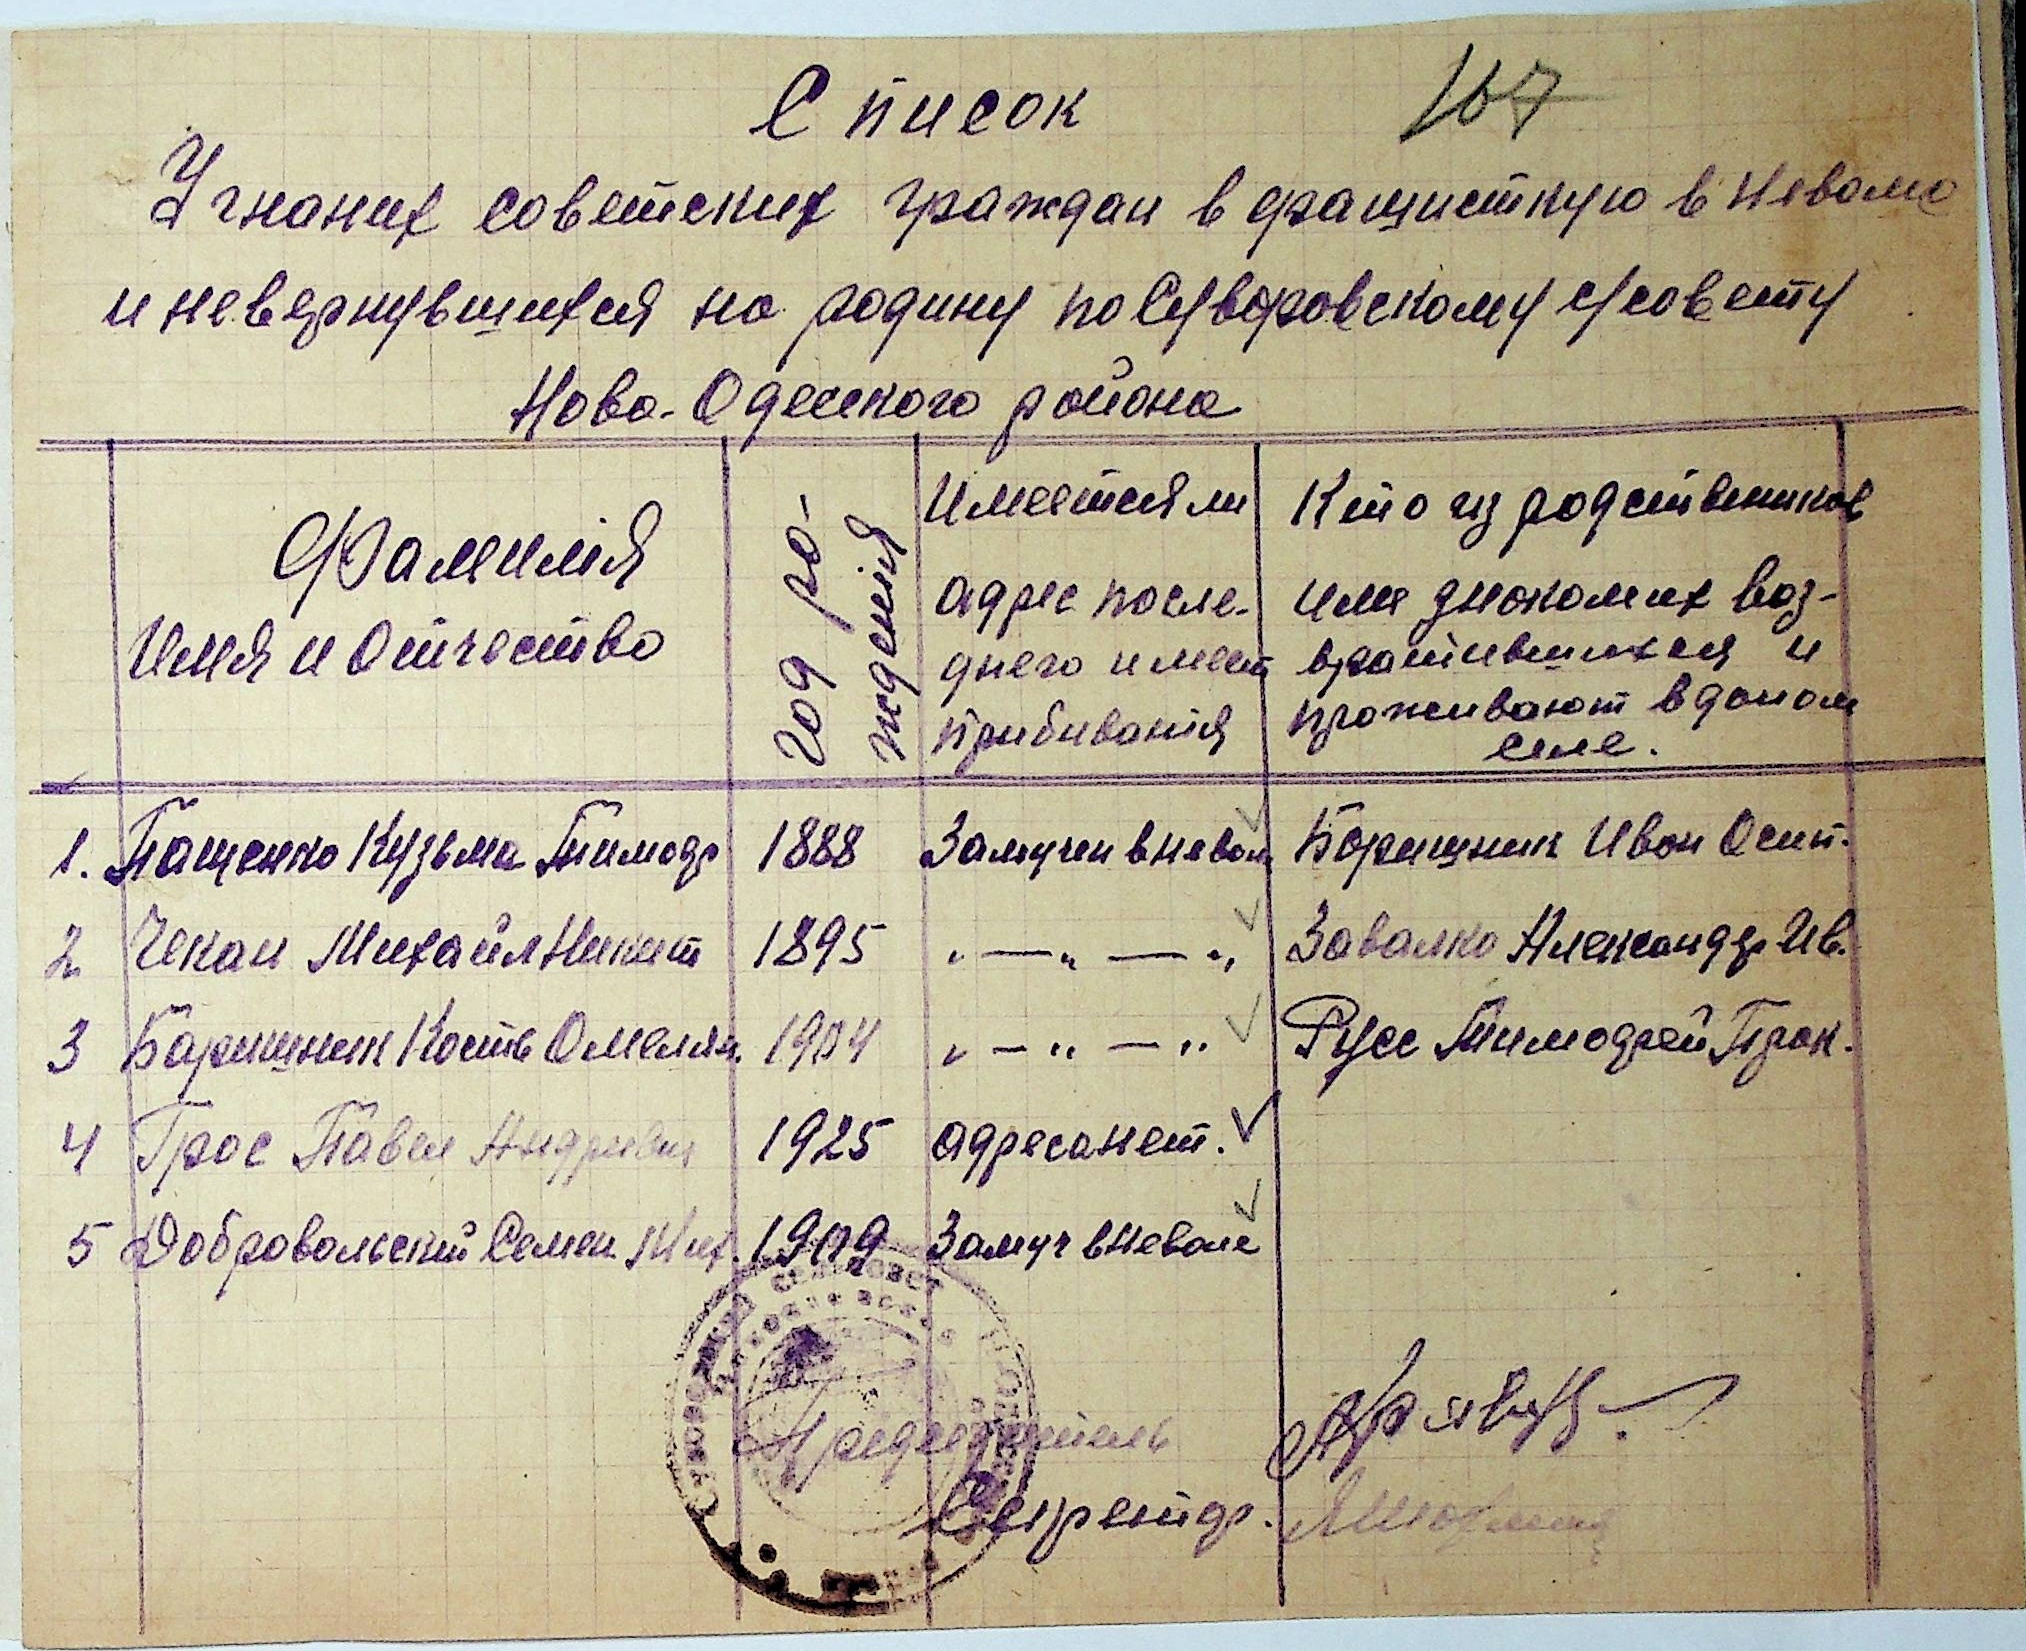 Список
107
Угнаних советских граждан в фашисткую в неволю
и невернувшихся на родину по Суворовскому с/совету
Ново-Одесского района
Фамилія
Имя и Отчество
год ро-
жденія
Имеется ли
адрес после-
днего имест
прибиванія
Кто из родствеников
или знакомих воз-
вратившихся и
проживают в даном
селе.
1. Пащенко Кузьма Тимоф 1888 Замучен в невол Борищник Иван Осип.
2 Чекан Михайл Никит 1895 „ — „ — „ Завалко Александр Ив.
3 Борищник Кость Омелян. 1904 „ — „ — „ Русс Тимофей Прок.
4 Грос Павел Андреев 1925 адреса нет.
5 Добровольский Семен Мих. 1909 Замуч в неволе
Председатель
Секретар.